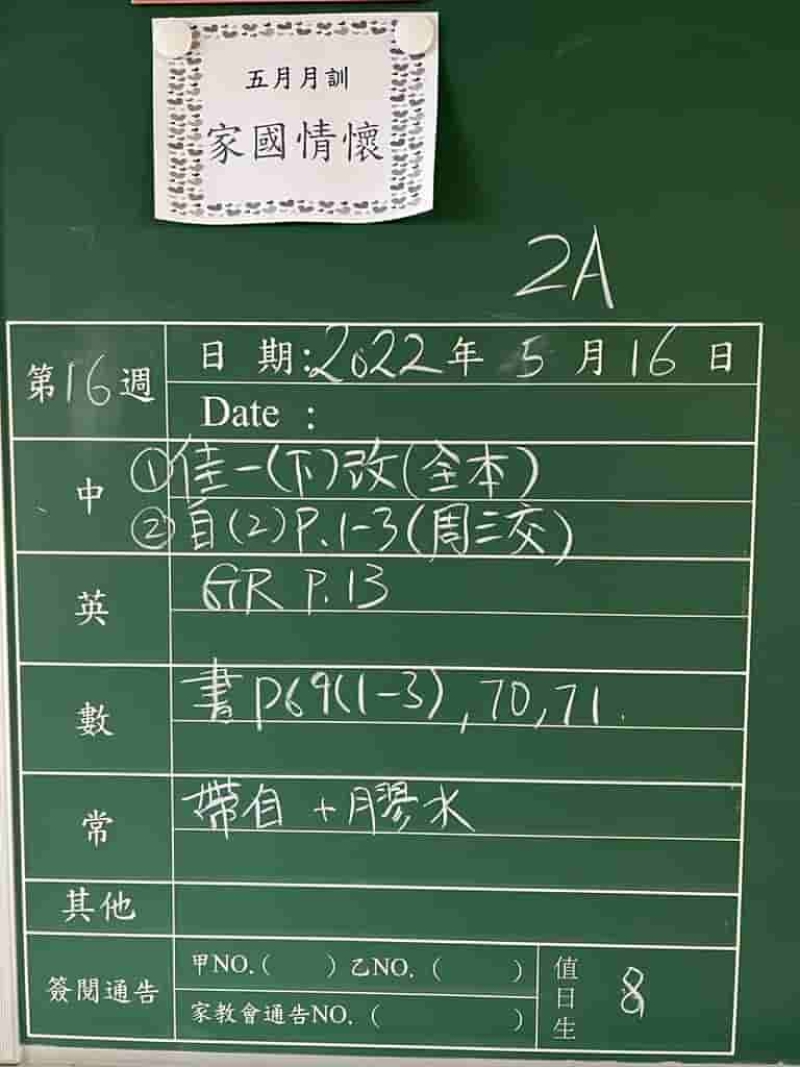 五月月訓
家國情懷
2A
第16週
日 期:2022年 5 月 16 日
Date :
中
①佳一(下)改(全本)
②自(2)P.1-3(周三交)
英
GR P.13
數
書 P69(1-3),70,71.
常
帶自 + 膠水
其他
簽閱通告
甲NO.( )乙NO.( )
家教會通告NO.( )
值日生
8